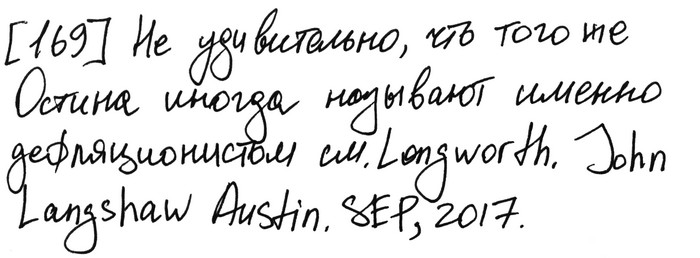 [169] Не удивительно, что того же
Остина иногда называют именно
дефляционистом см. Longworth. John
Langshaw Austin. SEP, 2017.